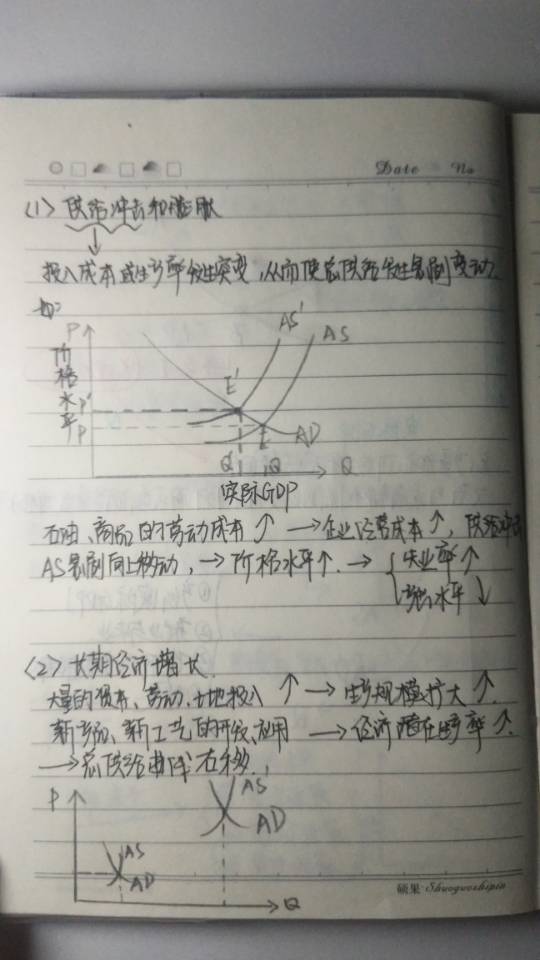 Date No
(1) 供给冲击和膨胀
投入成本或生产率发生突变,从而使总供给发生急剧变动.
如:
P
AS'
AS
价格水平
E'
P'
P
E
AD
Q' Q Q
实际GDP
石油、商品的劳动成本↑ →企业经营成本↑,供给冲击
AS急剧向上移动,→价格水平↑.→ { 失业率↑
水平↓
(2) 长期经济增长.
大量的资本、劳动、土地投入↑→生产规模扩大↑.
新产品、新工艺的开发、应用 →经济潜在生产率↑.
→总供给曲线右移.
P
AS'
AD
AS
AD
Q
硕果 Shuoguoshipin